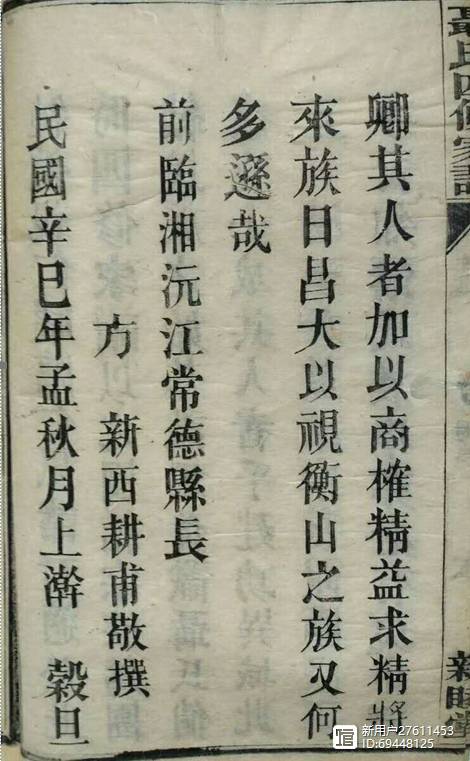 卿其人者加以商榷精益求精將
來族日昌大以視衡山之族又何
多遜哉
前臨湘沅江常德縣長
方新西耕甫敬撰
民國辛巳年孟秋月上澣 穀旦
新用户27611453
ID:69448125